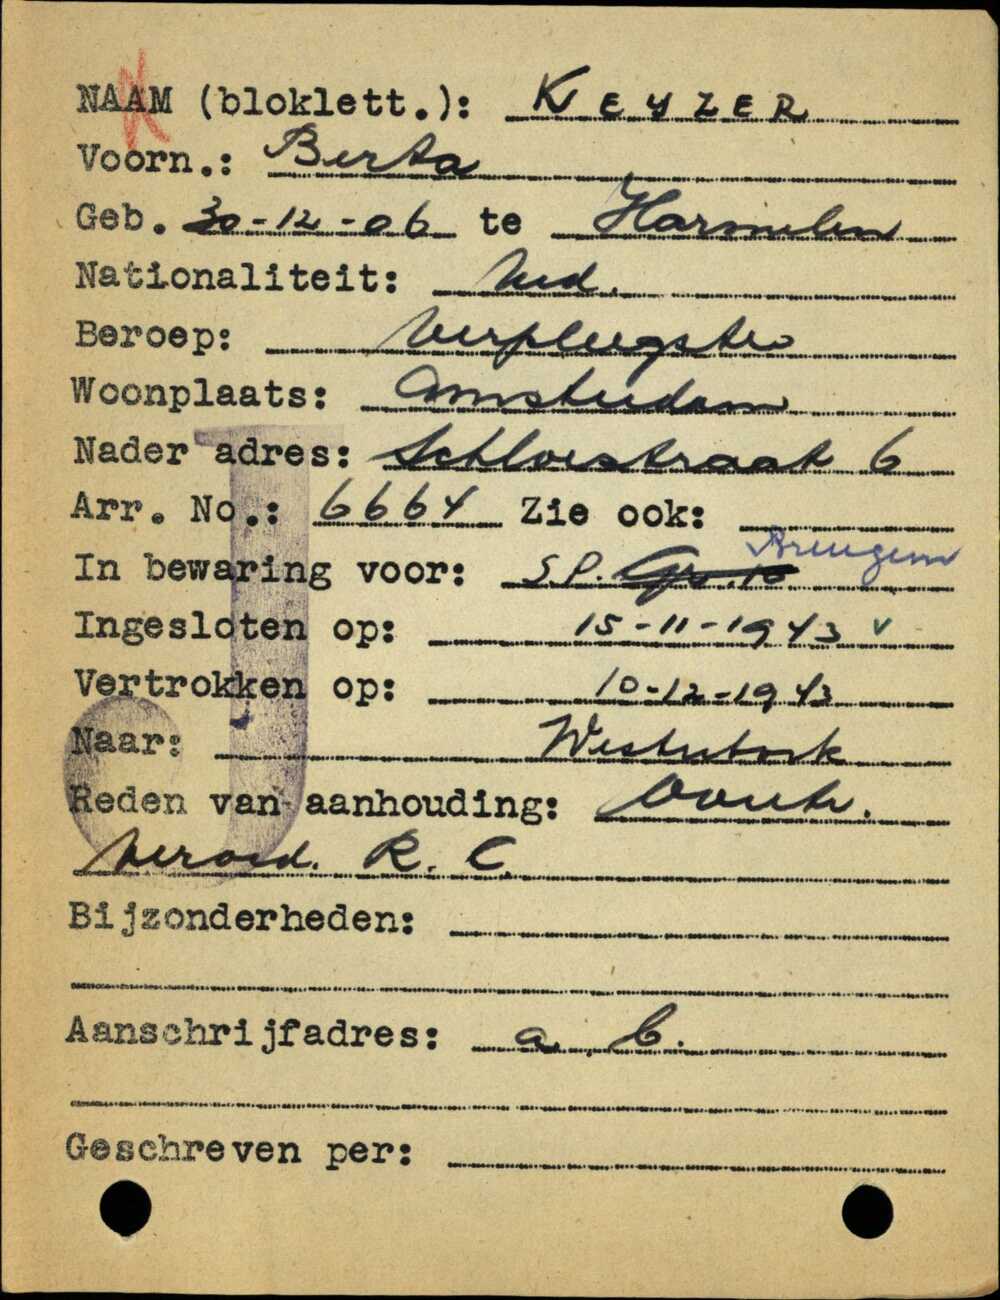 NAAM (bloklett.): KEYZER
Voorn.: Berta
Geb. 30-12-06 te Harmelen
Nationaliteit: Ned.
Beroep: Verpleegster
Woonplaats: Amsterdam
Nader adres: straat 6
Arr. No.: 6664 Zie ook:
In bewaring voor: S.P. Breugem
Ingesloten op: 15-11-1943 v
Vertrokken op: 10-12-1943
Naar: Westerbork
Reden van aanhouding:
R. C.
Bijzonderheden:
Aanschrijfadres: a. b.
Geschreven per:
J